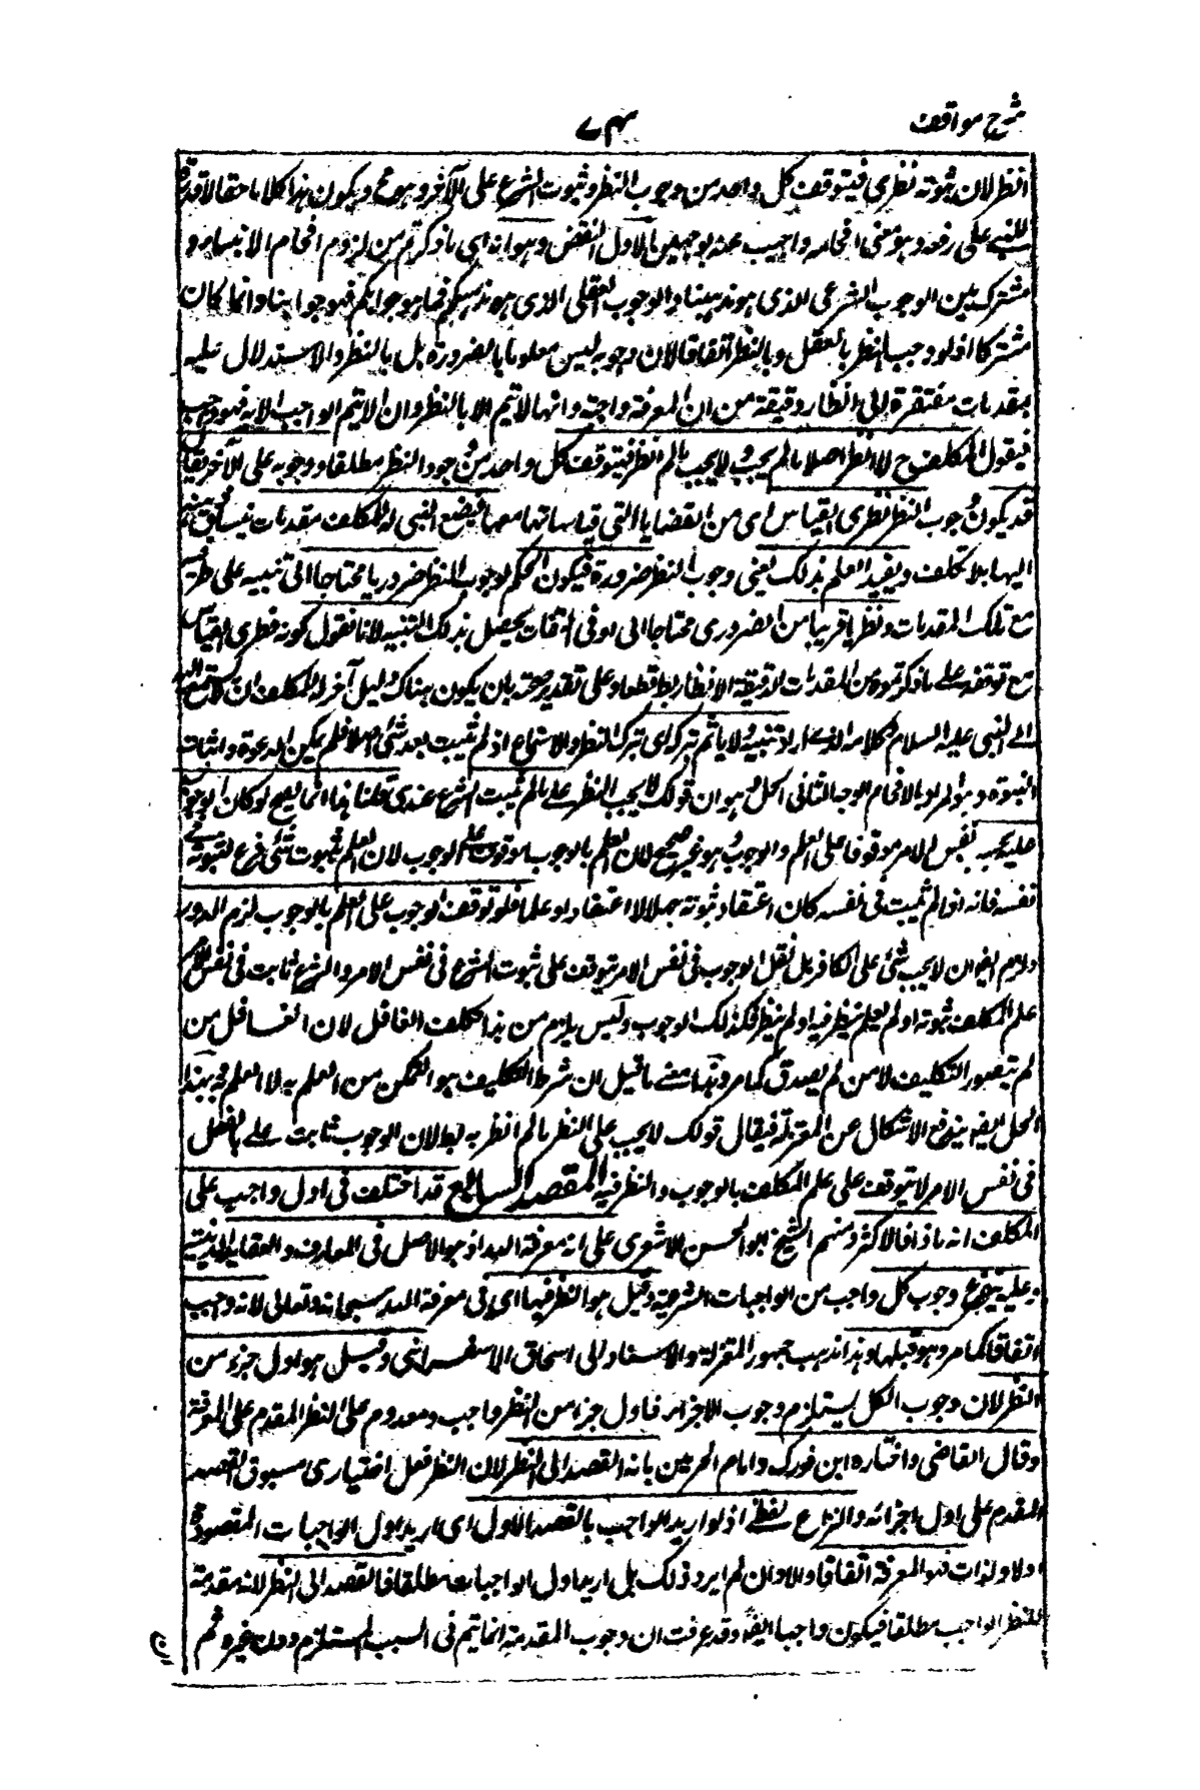 شرح مواقف
۷۴
انظر لان ثبوته نظرى فيتوقف كل واحد من وجوب النظر وثبوت الشرع على الآخر وهو مح ويكون هذا كلاما حقا لا قدرة
للنبي على دفعه وهو معنى افحامه واجيب عنه بوجهين الاول النقض وهو انه اى ما ذكرتم من لزوم افحام الانبياء
مشترك بين الوجوب الشرعى الذى هو مذهبنا والوجوب العقلى الذى هو مذهبكم فما هو جوابكم فهو جوابنا وانما كان
مشتركا اذ لو وجب النظر بالعقل وبالنظر اتفاقا لان وجوبه ليس معلوما بالضرورة بل بالنظر والاستدلال عليه
بمقدمات مفتقرة الى انظار دقيقة من ان المعرفة واجبة وانها لا تتم الا بالنظر وان ما لا يتم الواجب الا به فهو واجب
فيقول المكلف ح لا انظر اصلا ما لم يجب ولا يجب ما لم انظر فيتوقف كل واحد من وجود النظر مطلقا ووجوبه على الآخر لا يقال
قد يكون وجوب النظر فطرى القياس اى من القضايا التى قياساتها معها فيضع النبى له للمكلف مقدمات ينساق ذهنه
اليها بلا تكلف ويفيد العلم بذلك يعنى وجوب النظر ضرورة فيكون الحكم بوجوب النظر ضروريا محتاجا الى تنبيه على طرفيه
مع تلك المقدمات ونظريا قريبا من الضرورى محتاجا الى ادنى التفات يحصل بذلك التنبيه لانا نقول كونه فطرى القياس
مع توقفه على ما ذكرتموه من المقدمات الدقيقة الانظار بط قطعا وعلى تقدير صحته بان يكون هناك دليل آخر للمكلف ان لا يستمع
الى النبى عليه السلام وكلامه الذى اراد تنبيهه ولا ياثم بتركه اى بترك النظر والاستماع اذ لم يثبت بعد شئ اصلا فلم يمكن الدعوة واثبات
النبوة وهو المراد بالافحام الوجه الثانى الحل وهو ان قولك لا يجب النظر على ما لم يثبت الشرع عندى قلنا هذا انما يصح لو كان الوجوب
عليه بحسب نفس الامر موقوفا على العلم بالوجوب وهو غير صحيح لان العلم بالوجوب موقوف على الوجوب لان العلم بثبوت شئ فرع لثبوته فى
نفسه فانه اذا لم يثبت فى نفسه كان اعتقاد ثبوته جهلا لا اعتقادا وعلما فلو توقف الوجوب على العلم بالوجوب لزم الدور
ولزم ايضا ان لا يجب شئ على الكافر بل نقل الوجوب فى نفس الامر يتوقف على ثبوت الشرع فى نفس الامر والشرع ثابت فى نفس الامر
علم المكلف ثبوته او لم يعلم نظر فيه او لم ينظر فكذلك الوجوب وليس يلزم من هذا تكليف الغافل لان الغافل من
لم يتصور التكليف لا من لم يصدق كما مر وهذا معنى ما قيل ان شرط التكليف هو التمكن من العلم به لا العلم به وبهذا
الحل ايضا يندفع الاشكال عن المعتزلة فيقال قولك لا يجب على النظر ما لم انظر بط لان الوجوب ثابت على بالفعل
فى نفس الامر لا يتوقف على علم المكلف بالوجوب والنظر فيه المقصد السابع قد اختلف فى اول واجب على
المكلف انه ماذا فالاكثر ومنهم الشيخ ابو الحسن الاشعرى على انه معرفة الله اذ هو الاصل فى المعارف والعقايد الدينية
وعليه يتفرع وجوب كل واجب من الواجبات الشرعية وقيل هو النظر فيها اى فى معرفة الله سبحانه وتعالى لانه واجب
اتفاقا كما مر وهو قبلها وهذا مذهب جمهور المعتزلة والاستاد ابى اسحاق الاسفرائنى وقيل هو اول جزء من
النظر لان وجوب الكل يستلزم وجوب الاجزاء فاول جزء من النظر واجب ومقدم على النظر المقدم على المعرفة
وقال القاضى واختاره ابن فورك وامام الحرمين بانه القصد الى النظر لان النظر فعل اختيارى مسبوق بالقصد
المقدم على اول اجزائه والنزاع لفظى اذ لو اريد الواجب بالقصد الاول اى اريد اول الواجبات المقصودة
اولا وبالذات فهو المعرفة اتفاقا والا وان لم يرد ذلك بل اريد اول الواجبات مطلقا فالقصد الى النظر لانه مقدمة
للنظر الواجب مطلقا فيكون واجبا ايضا وقد عرفت ان وجوب المقدمة انما يتم فى السبب المستلزم دون غيره ثم